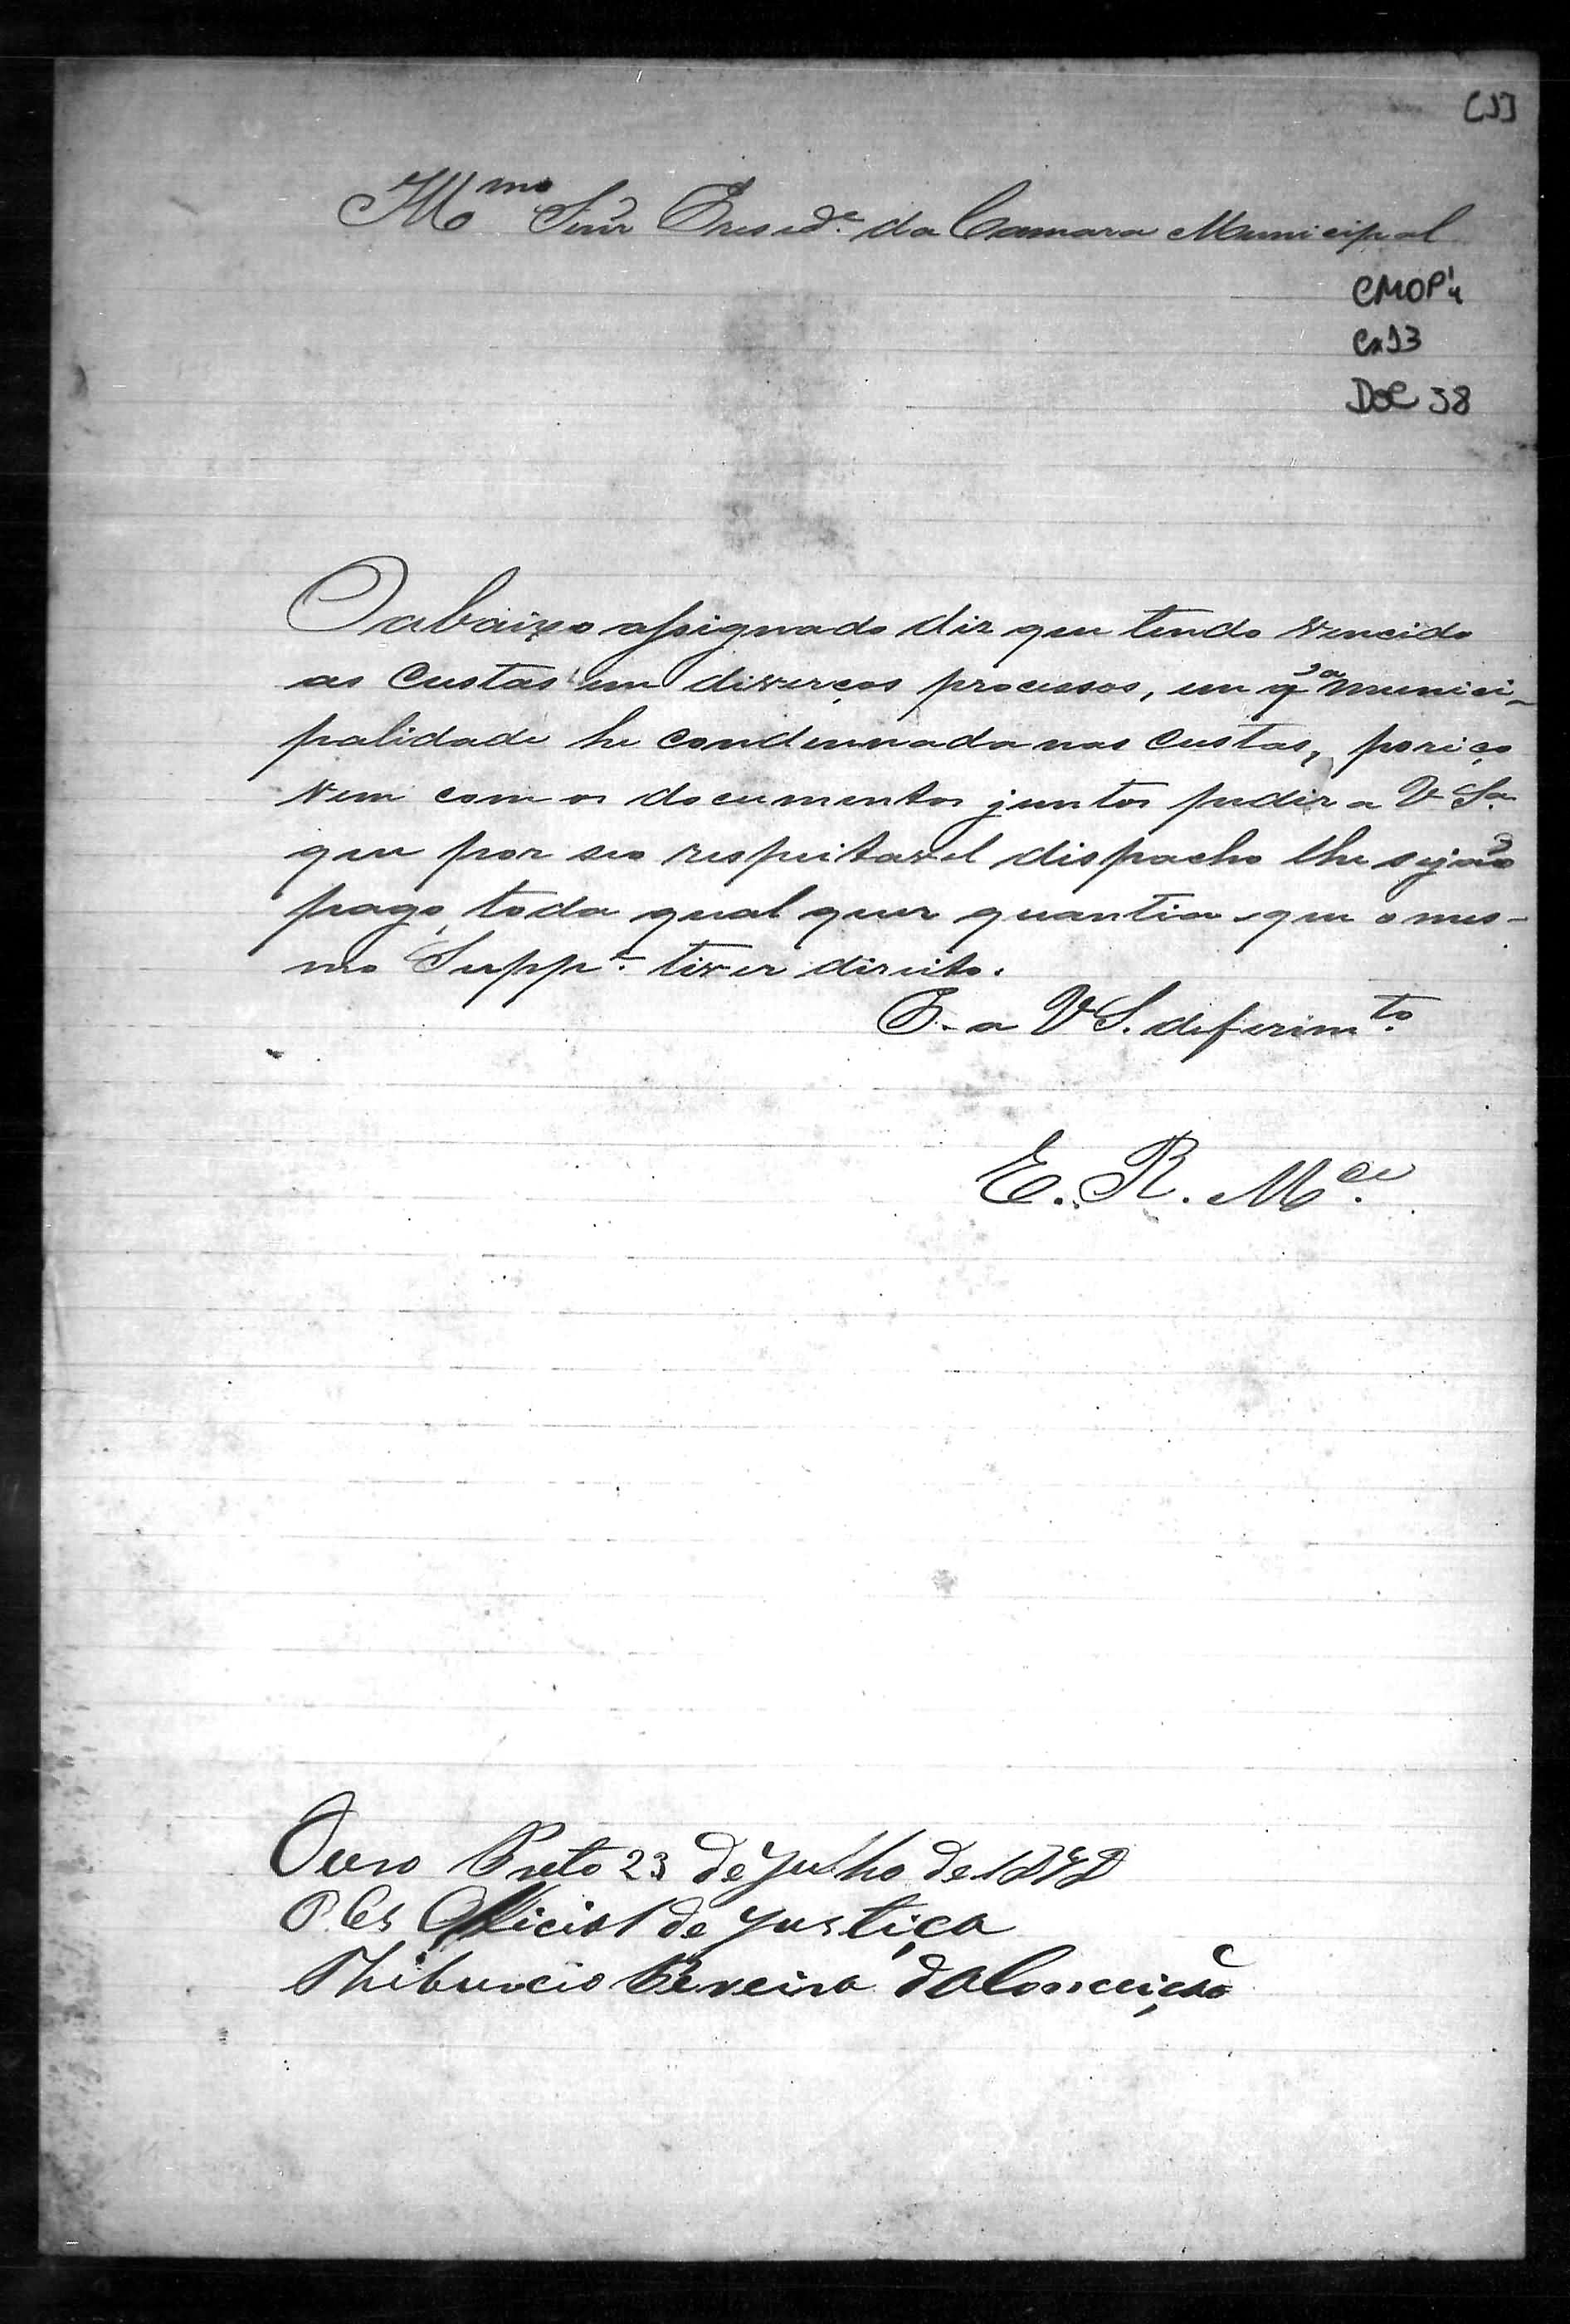 [1]
Illmo Snr Presid.e da Camara Municipal
CMOP 1/4
Cx 13
Doc 38
O abaixo assignado diz que tendo vencido
as Custas em diverços processos, em q a Munici-
palidade he condennada nas Custas, poriço
vem com os documentos juntos pedir a V Sa.
que por seo respeitavel dispacho lhe sejão
pago, toda qual quer quantia que o mes-
mo Suppe. tiver direito.
P. a V S. deferimto.
E. R. Mce.
Ouro Preto 23 de Julho de
Official de Justiça
Thiburcio Pereira da Conceição